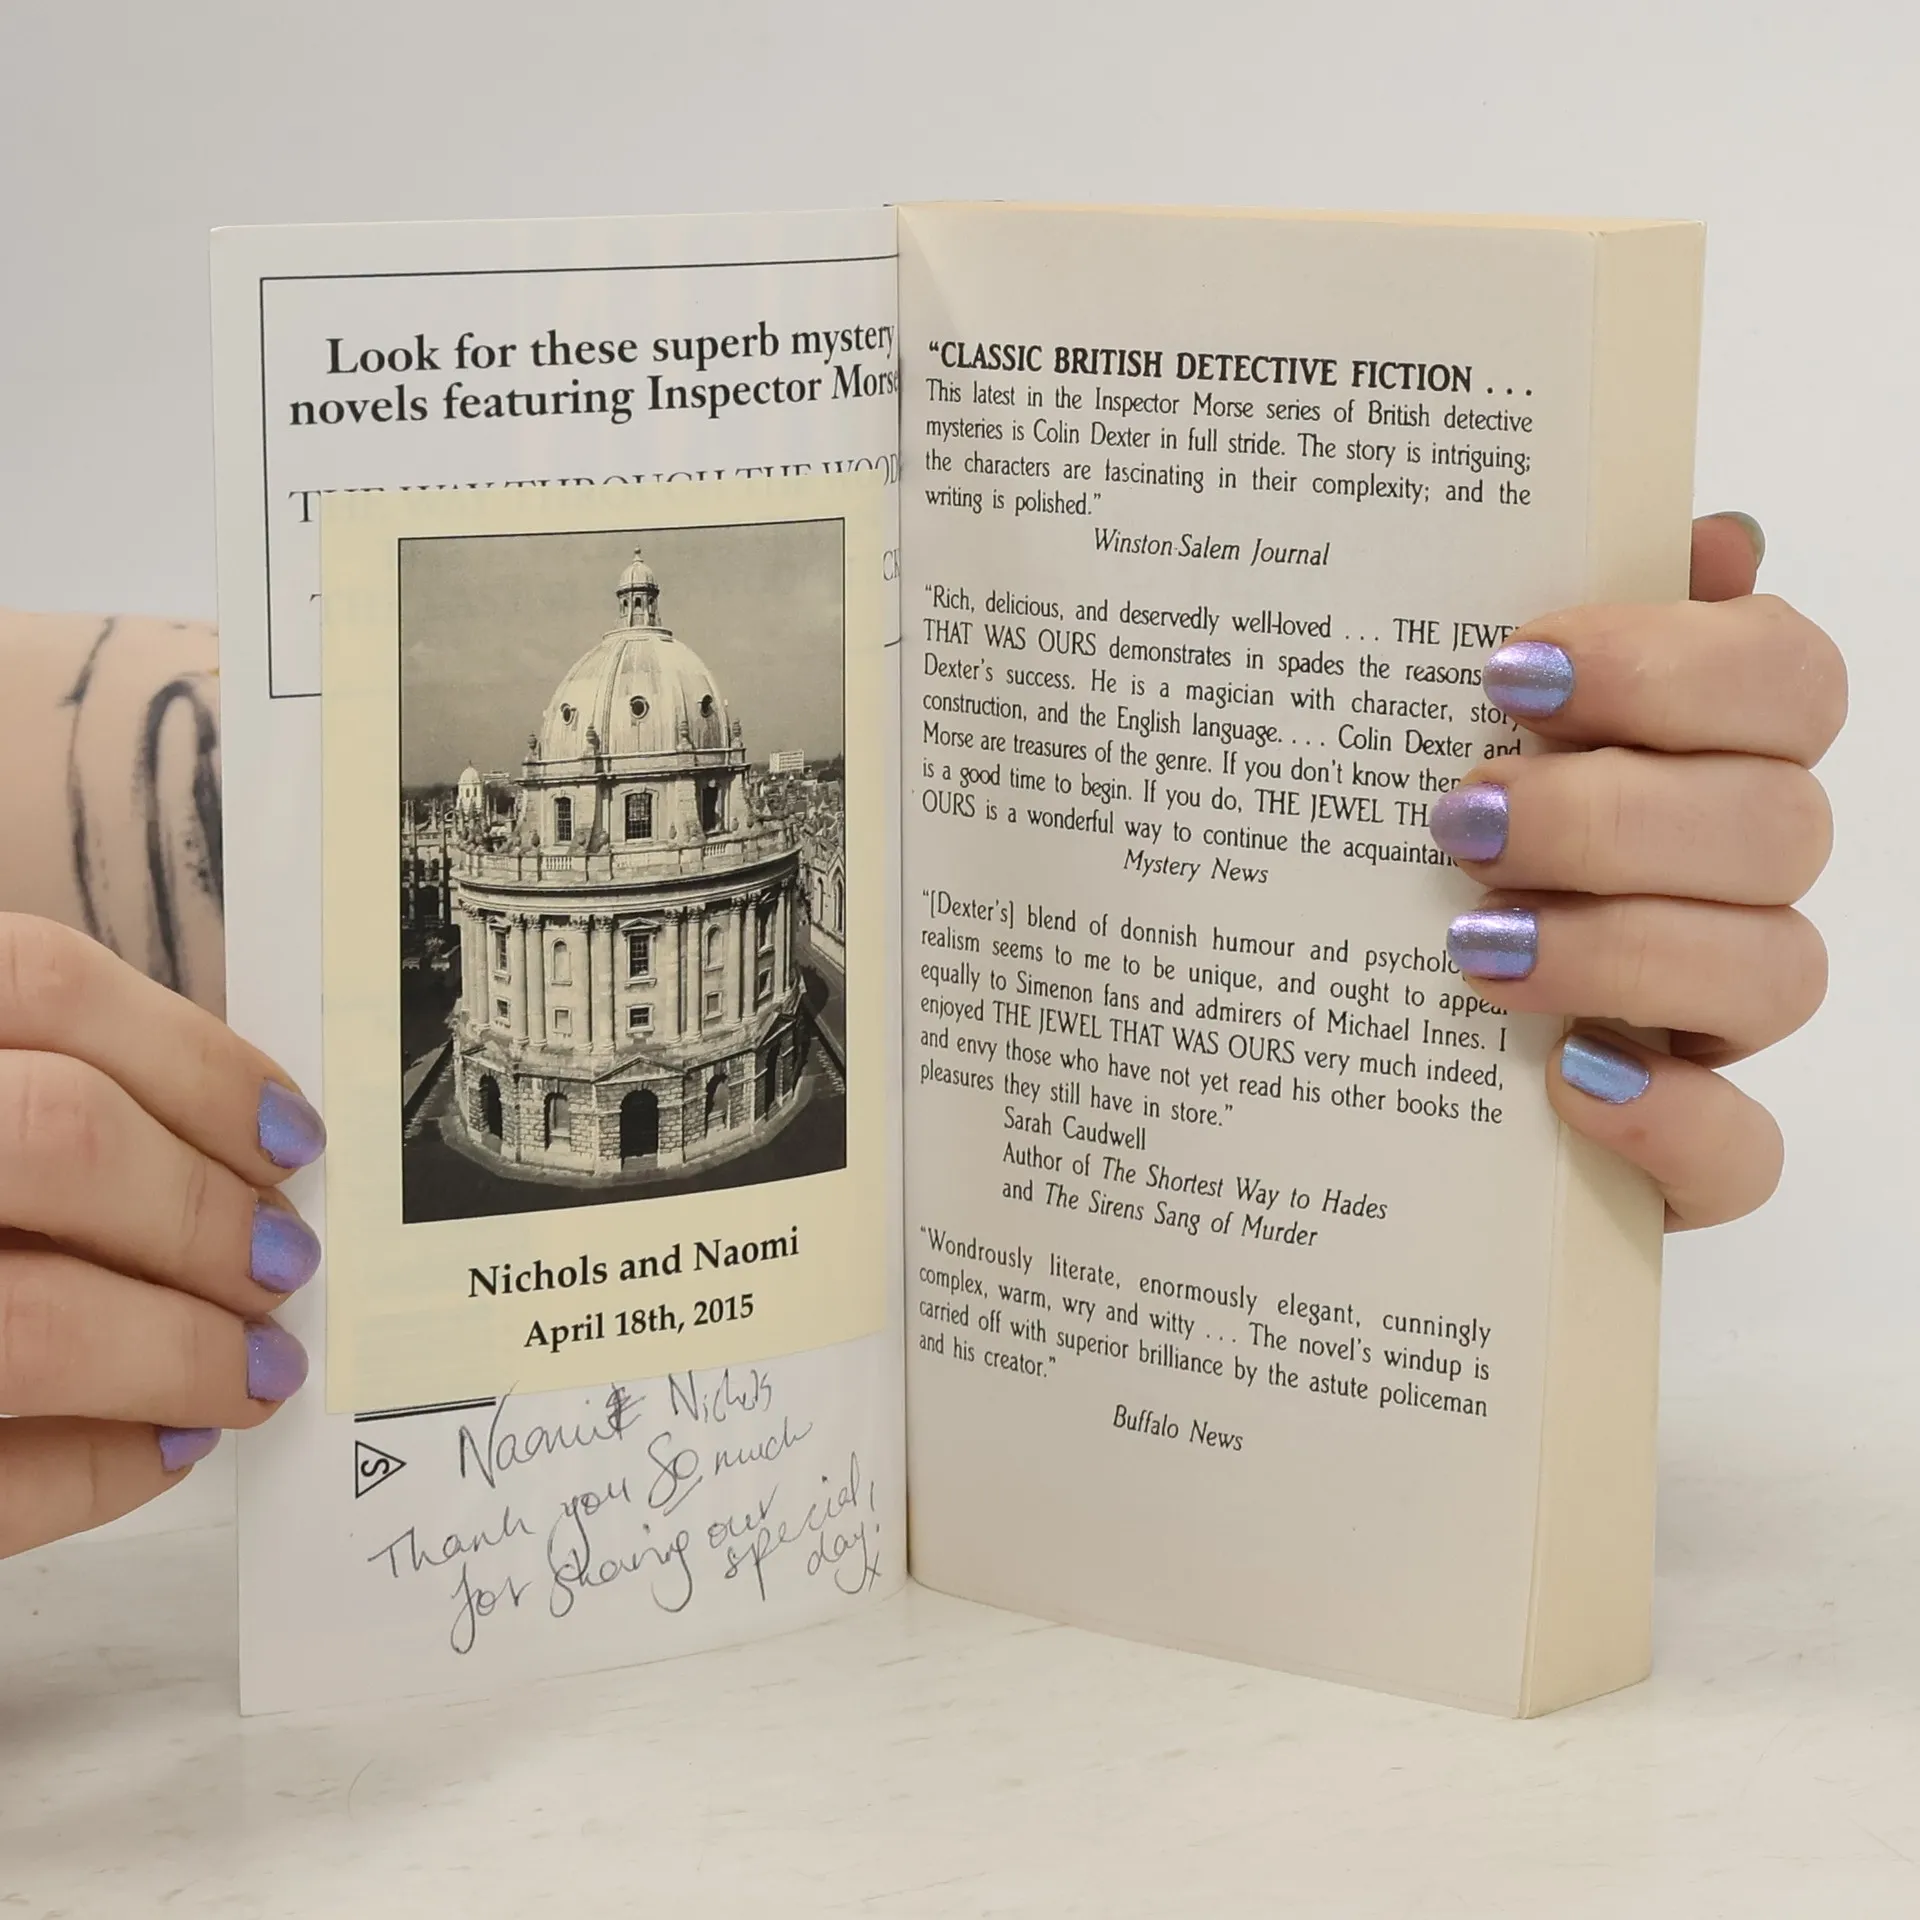 Look for these superb mystery
novels featuring Inspector Morse
THE WAY THROUGH THE WOOD
Nichols and Naomi
April 18th, 2015
S
Naomi & Nichols
Thank you SO much
for sharing our special
day! x
“CLASSIC BRITISH DETECTIVE FICTION . . .
This latest in the Inspector Morse series of British detective
mysteries is Colin Dexter in full stride. The story is intriguing;
the characters are fascinating in their complexity; and the
writing is polished.”
Winston-Salem Journal
“Rich, delicious, and deservedly well-loved . . . THE JEWEL
THAT WAS OURS demonstrates in spades the reasons
Dexter’s success. He is a magician with character, story
construction, and the English language. . . . Colin Dexter and
Morse are treasures of the genre. If you don’t know them
is a good time to begin. If you do, THE JEWEL TH
OURS is a wonderful way to continue the acquaintan
Mystery News
“[Dexter’s] blend of donnish humour and psycholo
realism seems to me to be unique, and ought to appeal
equally to Simenon fans and admirers of Michael Innes. I
enjoyed THE JEWEL THAT WAS OURS very much indeed,
and envy those who have not yet read his other books the
pleasures they still have in store.”
Sarah Caudwell
Author of The Shortest Way to Hades
and The Sirens Sang of Murder
“Wondrously literate, enormously elegant, cunningly
complex, warm, wry and witty . . . The novel’s windup is
carried off with superior brilliance by the astute policeman
and his creator.”
Buffalo News